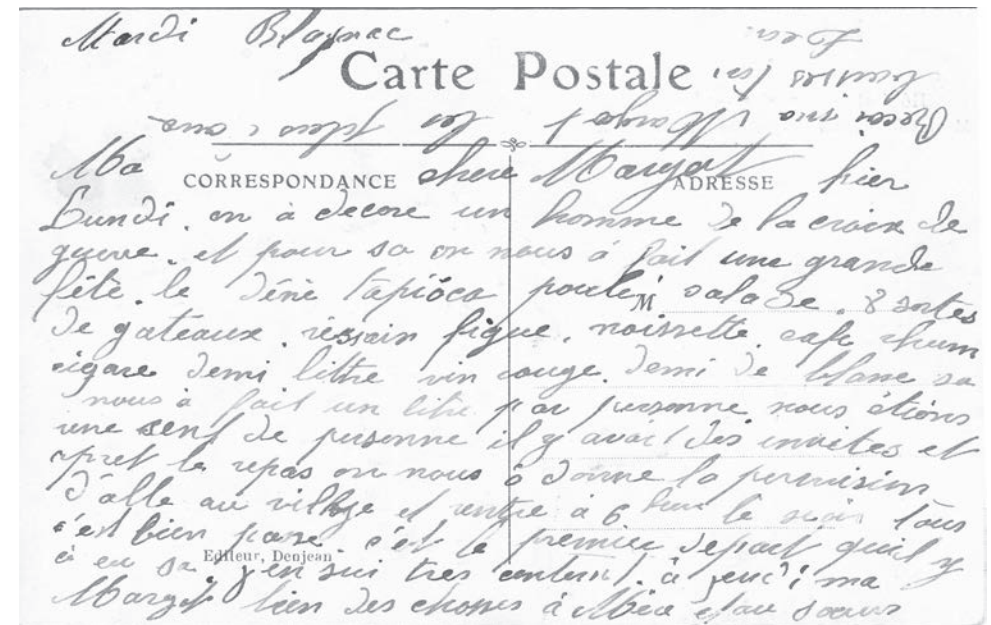 Mardi Blagnac
Carte Postale
CORRESPONDANCE
ADRESSE
Ma chere Margot hier
Lundi. on à decore un homme de la croix de
guerre. et pour sa on nous à fait une grande
fête. le déné tapioca poule salade. 8 sortes
de gateaux. raisain figue. noissette. cafe rhum
cigare demi littre vin rouge. demi de blanc sa
nous à fait un litre par personne nous étions
une de personne il y avait des invites et
apret le repas on nous à donne la permision
d'alle au village et rentre à 6 le soir tous
c'est bien passe c'et le premier depart quil y
à eu sa j'en sui tres content. à jeudi ma
Margot bien des choses à
M
Editeur, Denjean
Recoi ma Margot les plus